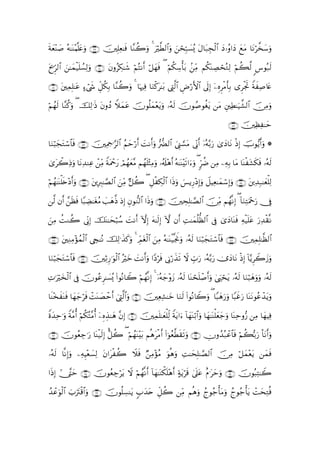 وَسَخَّرْنَا مَعَ دَاوُۥدَ ٱلْجِبَالَ يُسَبِّحْنَ وَٱلطَّيْرَ ۚ وَكُنَّا فَـٰعِلِينَ ﴿٧٩﴾ وَعَلَّمْنَـٰهُ صَنْعَةَ
لَبُوسٍ لَّكُمْ لِتُحْصِنَكُم مِّنۢ بَأْسِكُمْ ۖ فَهَلْ أَنتُمْ شَـٰكِرُونَ ﴿٨٠﴾ وَلِسُلَيْمَـٰنَ ٱلرِّيحَ
عَاصِفَةً تَجْرِى بِأَمْرِهِۦٓ إِلَى ٱلْأَرْضِ ٱلَّتِى بَـٰرَكْنَا فِيهَا ۚ وَكُنَّا بِكُلِّ شَىْءٍ عَـٰلِمِينَ ﴿٨١﴾
وَمِنَ ٱلشَّيَـٰطِينِ مَن يَغُوصُونَ لَهُۥ وَيَعْمَلُونَ عَمَلًا دُونَ ذَٰلِكَ ۖ وَكُنَّا لَهُمْ
حَـٰفِظِينَ ﴿٨٢﴾
۞ وَأَيُّوبَ إِذْ نَادَىٰ رَبَّهُۥٓ أَنِّى مَسَّنِىَ ٱلضُّرُّ وَأَنتَ أَرْحَمُ ٱلرَّٰحِمِينَ ﴿٨٣﴾ فَٱسْتَجَبْنَا
لَهُۥ فَكَشَفْنَا مَا بِهِۦ مِن ضُرٍّ ۖ وَءَاتَيْنَـٰهُ أَهْلَهُۥ وَمِثْلَهُم مَّعَهُمْ رَحْمَةً مِّنْ عِندِنَا وَذِكْرَىٰ
لِلْعَـٰبِدِينَ ﴿٨٤﴾ وَإِسْمَـٰعِيلَ وَإِدْرِيسَ وَذَا ٱلْكِفْلِ ۖ كُلٌّ مِّنَ ٱلصَّـٰبِرِينَ ﴿٨٥﴾ وَأَدْخَلْنَـٰهُمْ
فِى رَحْمَتِنَآ ۖ إِنَّهُم مِّنَ ٱلصَّـٰلِحِينَ ﴿٨٦﴾ وَذَا ٱلنُّونِ إِذ ذَّهَبَ مُغَـٰضِبًا فَظَنَّ أَن لَّن
نَّقْدِرَ عَلَيْهِ فَنَادَىٰ فِى ٱلظُّلُمَـٰتِ أَن لَّآ إِلَـٰهَ إِلَّآ أَنتَ سُبْحَـٰنَكَ إِنِّى كُنتُ مِنَ
ٱلظَّـٰلِمِينَ ﴿٨٧﴾ فَٱسْتَجَبْنَا لَهُۥ وَنَجَّيْنَـٰهُ مِنَ ٱلْغَمِّ ۚ وَكَذَٰلِكَ نُـۨجِى ٱلْمُؤْمِنِينَ ﴿٨٨﴾
وَزَكَرِيَّآ إِذْ نَادَىٰ رَبَّهُۥ رَبِّ لَا تَذَرْنِى فَرْدًا وَأَنتَ خَيْرُ ٱلْوَٰرِثِينَ ﴿٨٩﴾ فَٱسْتَجَبْنَا
لَهُۥ وَوَهَبْنَا لَهُۥ يَحْيَىٰ وَأَصْلَحْنَا لَهُۥ زَوْجَهُۥٓ ۚ إِنَّهُمْ كَانُوا۟ يُسَـٰرِعُونَ فِى ٱلْخَيْرَٰتِ
وَيَدْعُونَنَا رَغَبًا وَرَهَبًا ۖ وَكَانُوا۟ لَنَا خَـٰشِعِينَ ﴿٩٠﴾ وَٱلَّتِىٓ أَحْصَنَتْ فَرْجَهَا فَنَفَخْنَا
فِيهَا مِن رُّوحِنَا وَجَعَلْنَـٰهَا وَٱبْنَهَآ ءَايَةً لِّلْعَـٰلَمِينَ ﴿٩١﴾ إِنَّ هَـٰذِهِۦٓ أُمَّتُكُمْ أُمَّةً وَٰحِدَةً
وَأَنَا۠ رَبُّكُمْ فَٱعْبُدُونِ ﴿٩٢﴾ وَتَقَطَّعُوٓا۟ أَمْرَهُم بَيْنَهُمْ ۖ كُلٌّ إِلَيْنَا رَٰجِعُونَ ﴿٩٣﴾
فَمَن يَعْمَلْ مِنَ ٱلصَّـٰلِحَـٰتِ وَهُوَ مُؤْمِنٌ فَلَا كُفْرَانَ لِسَعْيِهِۦ وَإِنَّا لَهُۥ
كَـٰتِبُونَ ﴿٩٤﴾ وَحَرَٰمٌ عَلَىٰ قَرْيَةٍ أَهْلَكْنَـٰهَآ أَنَّهُمْ لَا يَرْجِعُونَ ﴿٩٥﴾ حَتَّىٰٓ إِذَا
فُتِحَتْ يَأْجُوجُ وَمَأْجُوجُ وَهُم مِّن كُلِّ حَدَبٍ يَنسِلُونَ ﴿٩٦﴾ وَٱقْتَرَبَ ٱلْوَعْدُ